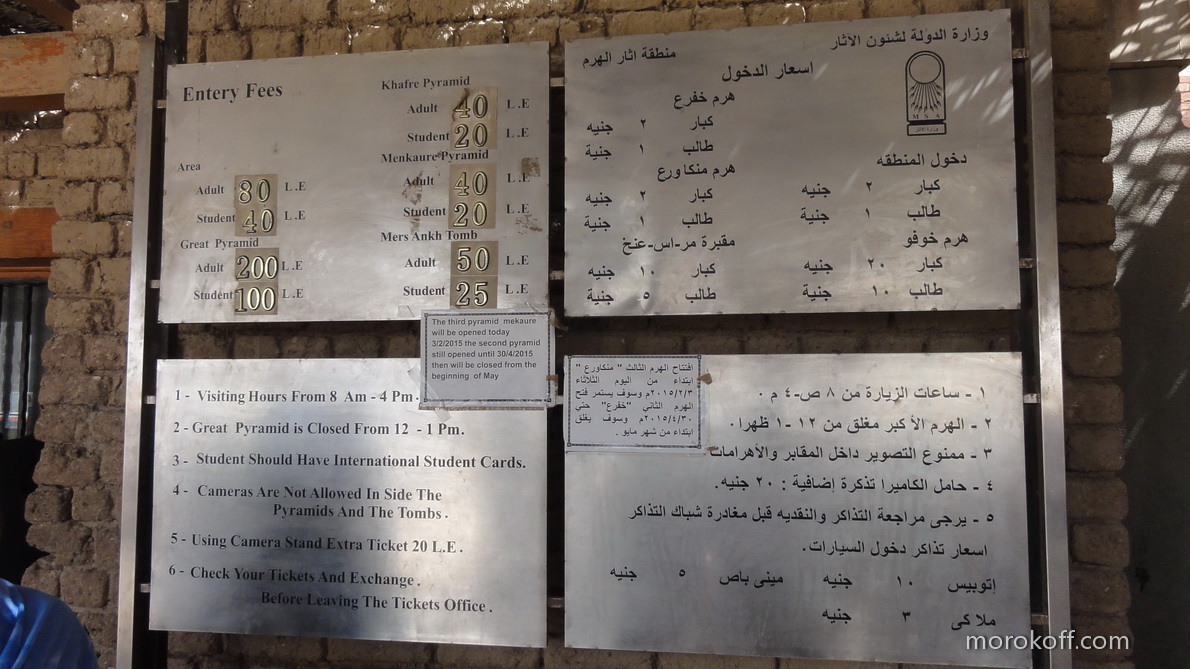 Entery Fees
Area
Adult 80 L.E
Student 40 L.E
Great Pyramid
Adult 200 L.E
Student 100 L.E
Khafre Pyramid
Adult 40 L.E
Student 20 L.E
Menkaure Pyramid
Adult 40 L.E
Student 20 L.E
Mers Ankh Tomb
Adult 50 L.E
Student 25 L.E
وزارة الدولة لشئون الآثار
منطقة اثار الهرم
اسعار الدخول
M S A
دخول المنطقه
كبار ٢ جنيه
طالب ١ جنية
هرم خوفو
كبار ٢٠ جنيه
طالب ١٠ جنية
هرم خفرع
كبار ٢ جنيه
طالب ١ جنية
هرم منكاورع
كبار ٢ جنيه
طالب ١ جنية
مقبرة مر-اس-عنخ
كبار ١٠ جنيه
طالب ٥ جنية
The third pyramid mekaure
will be opened today
3/2/2015 the second pyramid
still opened until 30/4/2015
then will be closed from the
beginning of May
1 - Visiting Hours From 8 Am - 4 Pm.
2 - Great Pyramid is Closed From 12 - 1 Pm.
3 - Student Should Have International Student Cards.
4 - Cameras Are Not Allowed In Side The
Pyramids And The Tombs .
5 - Using Camera Stand Extra Ticket 20 L.E .
6 - Check Your Tickets And Exchange .
Before Leaving The Tickets Office .
افتتاح الهرم الثالث " منكاورع "
ابتداء من اليوم الثلاثاء
٢٠١٥/٢/٣م وسوف يستمر فتح
الهرم الثاني "خفرع" حتى
٢٠١٥/٤/٣٠م وسوف يغلق
ابتداء من شهر مايو .
١ - ساعات الزيارة من ٨ ص-٤ م .
٢ - الهرم الأكبر مغلق من ١٢ -١ ظهرا.
٣ - ممنوع التصوير داخل المقابر والأهرامات
٤ - حامل الكاميرا تذكرة إضافية : ٢٠ جنيه.
٥ - يرجى مراجعة التذاكر والنقديه قبل مغادرة شباك التذاكر
اسعار تذاكر دخول السيارات.
إتوبيس ١٠ جنيه مينى باص ٥ جنيه
ملاكى ٣ جنيه
morokoff.com